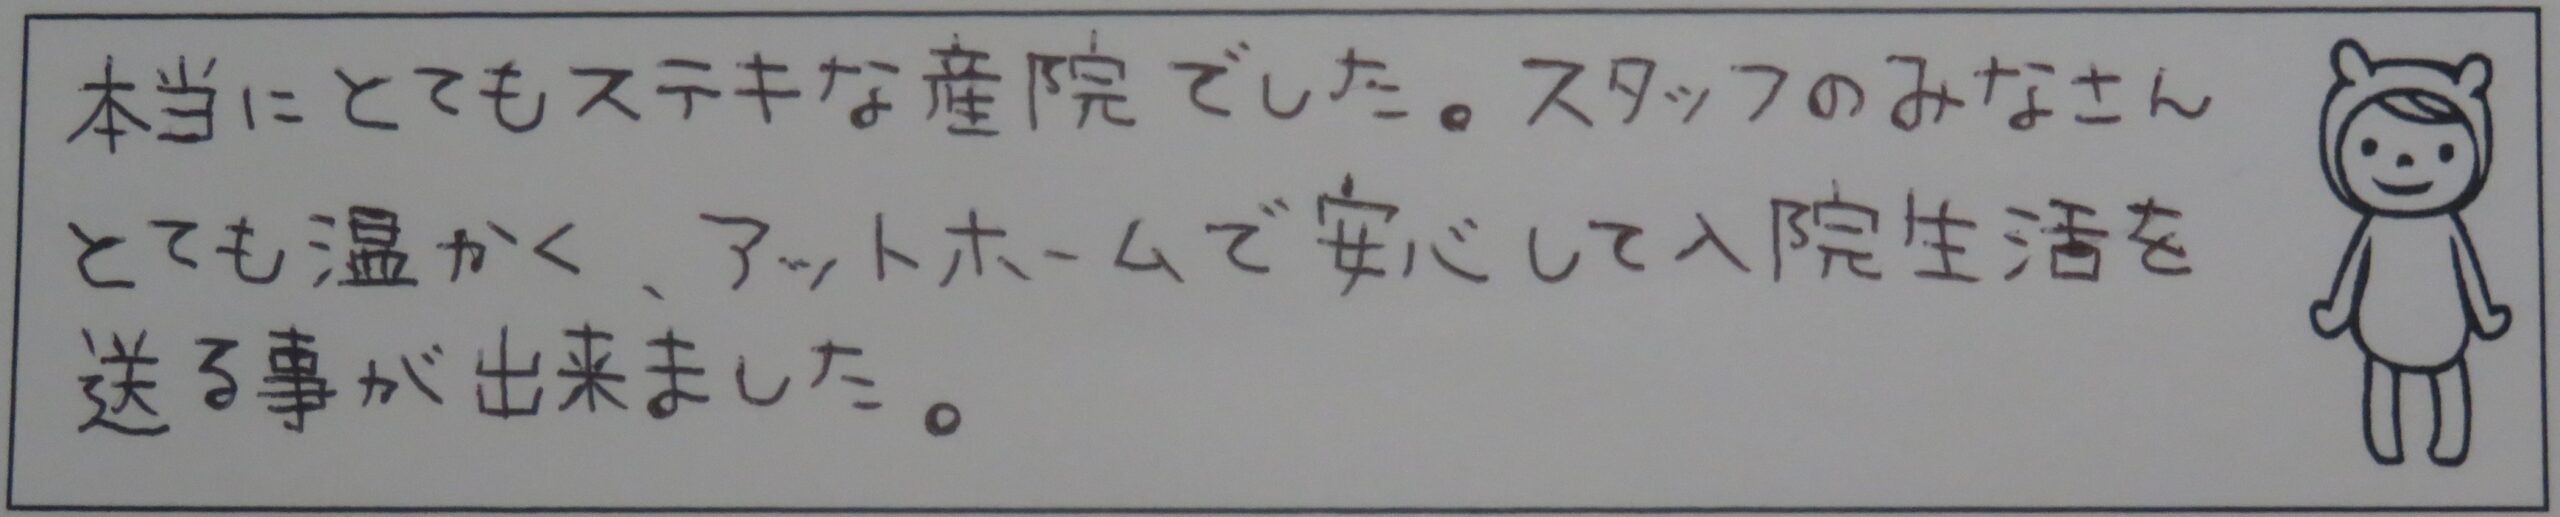 本当にとてもステキな産院でした。スタッフのみなさん
とても温かく、アットホームで安心して入院生活を
送る事が出来ました。